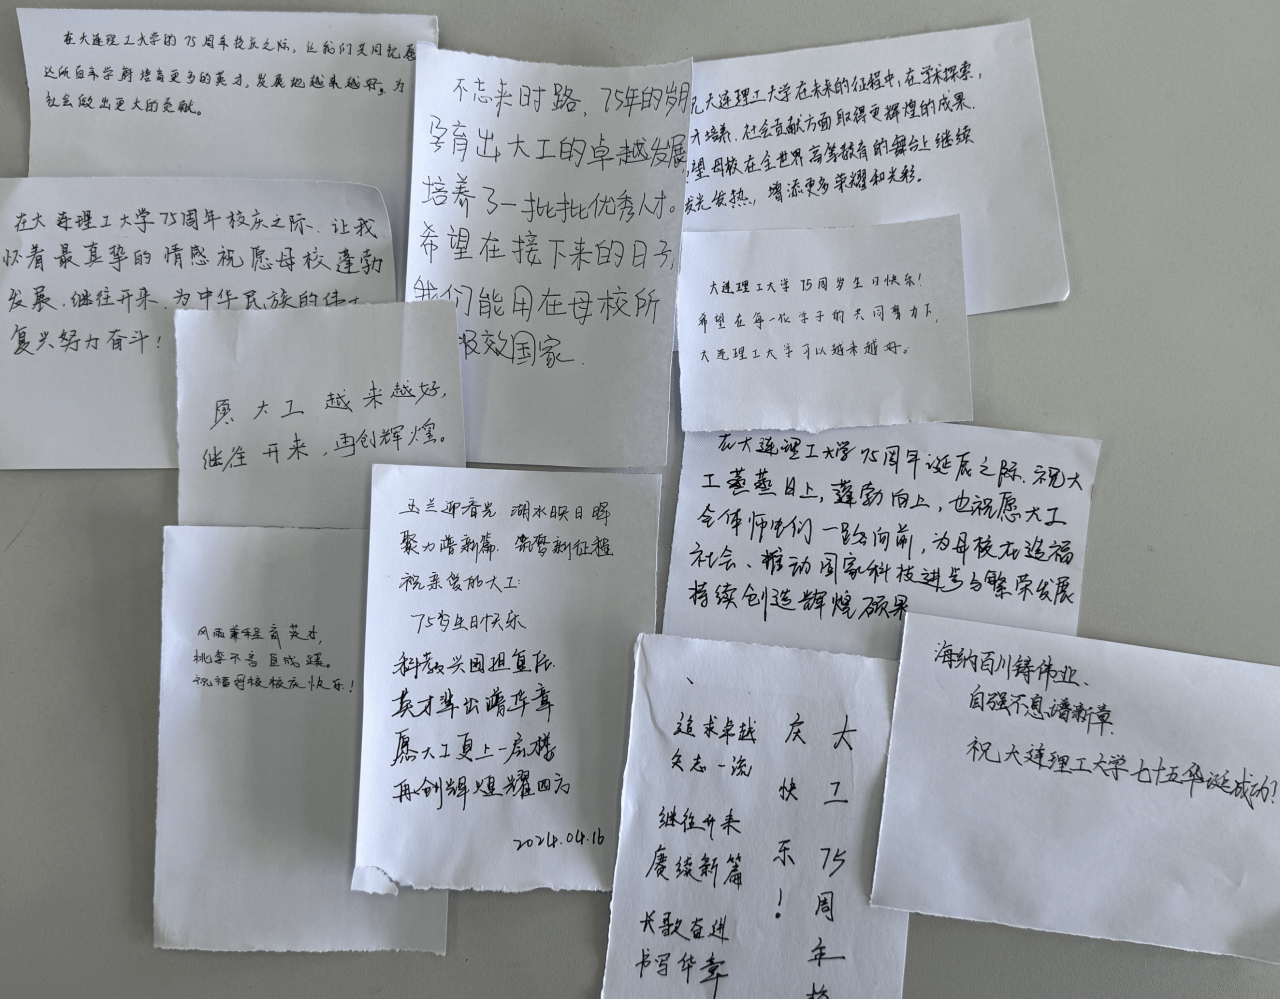 在大连理工大学的75周年校庆之际,让我们共同祝愿
这所百年学府培育更多的英才,发展地越来越好。为
社会做出更大的贡献。
不忘来时路,75年的岁月
孕育出大工的卓越发展
培养了一批批优秀人才。
希望在接下来的日子,
我们能用在母校所
报效国家.
祝大连理工大学在未来的征程中,在学术探索,
才培养、社会贡献方面取得更辉煌的成果.
望母校在全世界高等教育的舞台上继续
发光发热,增添更多荣耀和光彩。
在大连理工大学75周年校庆之际、让我
怀着最真挚的情感祝愿母校蓬勃
发展、继往开来、为中华民族的伟大
复兴努力奋斗!
大连理工大学75周岁生日快乐!
希望在每一位学子的共同努力下,
大连理工大学可以越来越好。
愿大工越来越好,
继往开来,再创辉煌。
在大连理工大学75周年诞辰之际、祝大
工蒸蒸日上,蓬勃向上,也祝愿大工
全体师生们一路向前,为母校在造福
社会、推动国家科技进步与繁荣发展
持续创造辉煌硕果
玉兰迎春光 湖水映日晖
聚力谱新篇 筑梦新征程
祝亲爱的大工:
75岁生日快乐
科教兴国担复任
英才辈出谱华章
愿大工更上一层楼
再创辉煌耀四方
2024.04.16
风雨兼程育英才,
桃李不言自成蹊。
祝福母校校庆快乐!
大工75周年校
庆快乐!
追求卓越
矢志一流
继往开来
赓续新篇
长歌奋进
书写华章
海纳百川铸伟业、
自强不息谱新章.
祝大连理工大学七十五华诞成功!